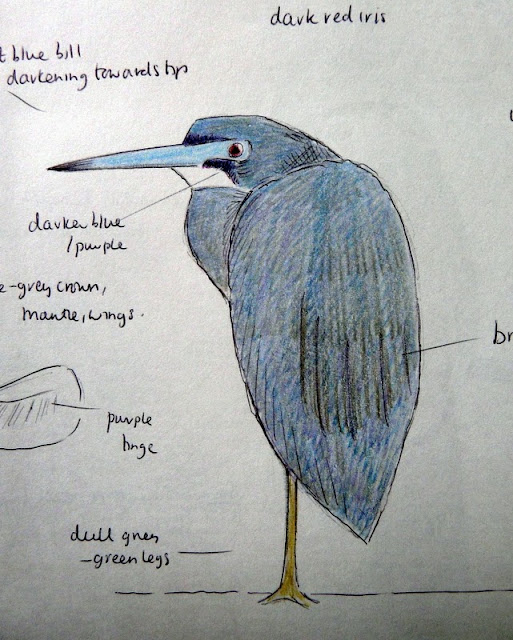 dark red iris
t blue bill
darkening towards tip
darker blue
/purple
e-grey crown,
mantle, wings.
br
purple
tinge
dull grey
-green legs